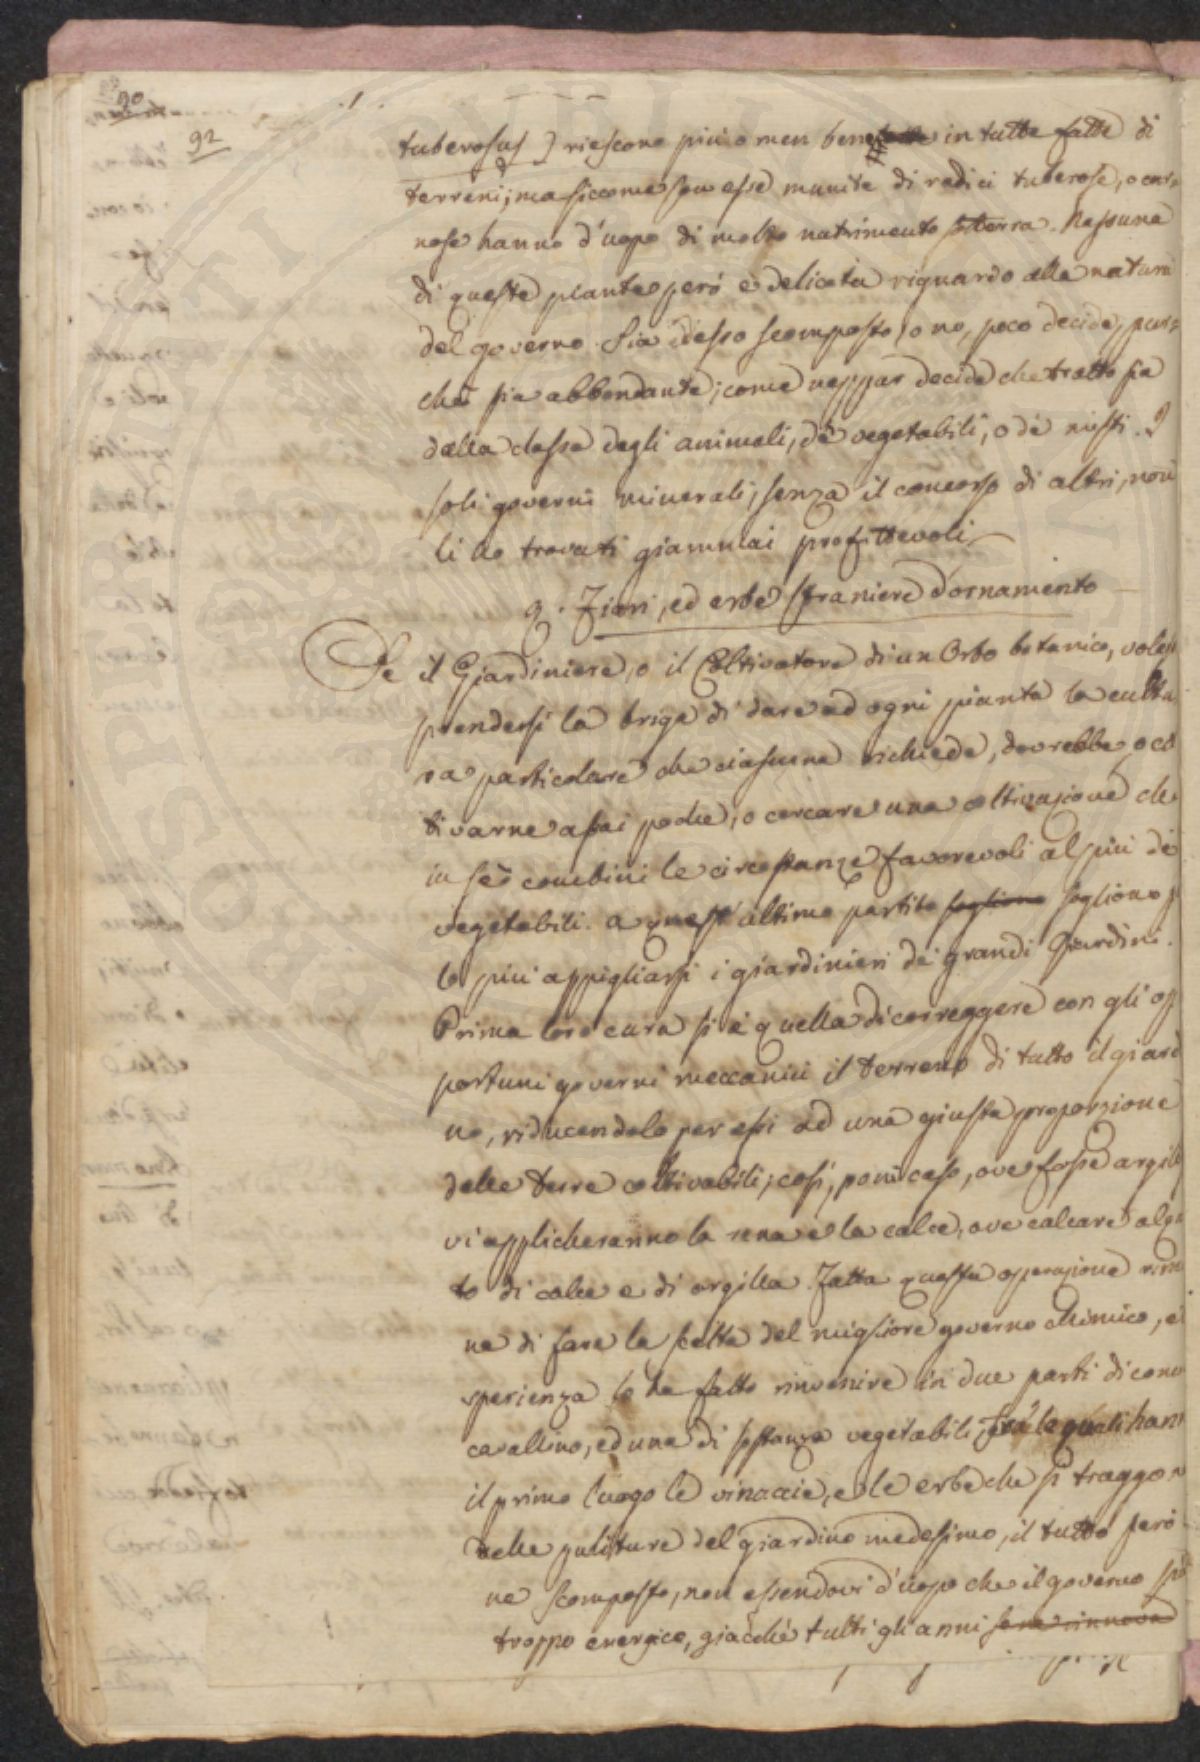 90
92
tuberosus) riescono più o men bene in tutte fatte di
terreni; ma siccome son esse munite di radici tuberose, o car=
nose hanno d'uopo di molto nutrimento sotterra. Nessuna
di queste piante però è delicata riguardo alla natura
del governo. Sia desso scomposto, o no, poco decide, pur=
chè sia abbondante; come neppur decide che tratto sia
dalla classe degli animali, de' vegetabili, o de' misti. I
soli governi minerali, senza il concorso di altri, non
li ho trovati giammai profittevoli
9. Fiori, ed erbe straniere d'ornamento
Se il Giardiniere, o il Coltivatore di un Orto botanico, voless
prendersi la briga di dare ad ogni pianta la cultu
ra particolare che ciascuna richiede, dovrebbe, o col
tivarne assai poche, o cercare una coltivazione che
in sè combini le circostanze favorevoli al più de'
vegetabili. a quest'ultimo partito sogliono sogliono p
lo più appigliarsi i giardinieri dei grandi Giardini.
Prima loro cura si è quella di correggere con gli op
portuni governi meccanici il terreno di tutto il giard
no, riducendolo per essi ad una giusta proporzione
delle terre coltivabili; così, poni caso, ove fosse argill
vi applicheranno la rena e la calce, ove calcare alqu
to di calce e di argilla. Fatta questa operazione rim
ne di fare la scelta del migliore governo chimico, e
sperienza lo ha fatto rinvenire in due parti di conc
cavallino, ed una di sostanze vegetabili, fra le quali hann
il primo luogo le vinaccie, e le erbe che si traggon
nelle puliture del giardino medesimo, il tutto però
ne scomposto, non essendovi d'uopo che il governo si
troppo energico, giacchè tutti gli anni se ne rinnova